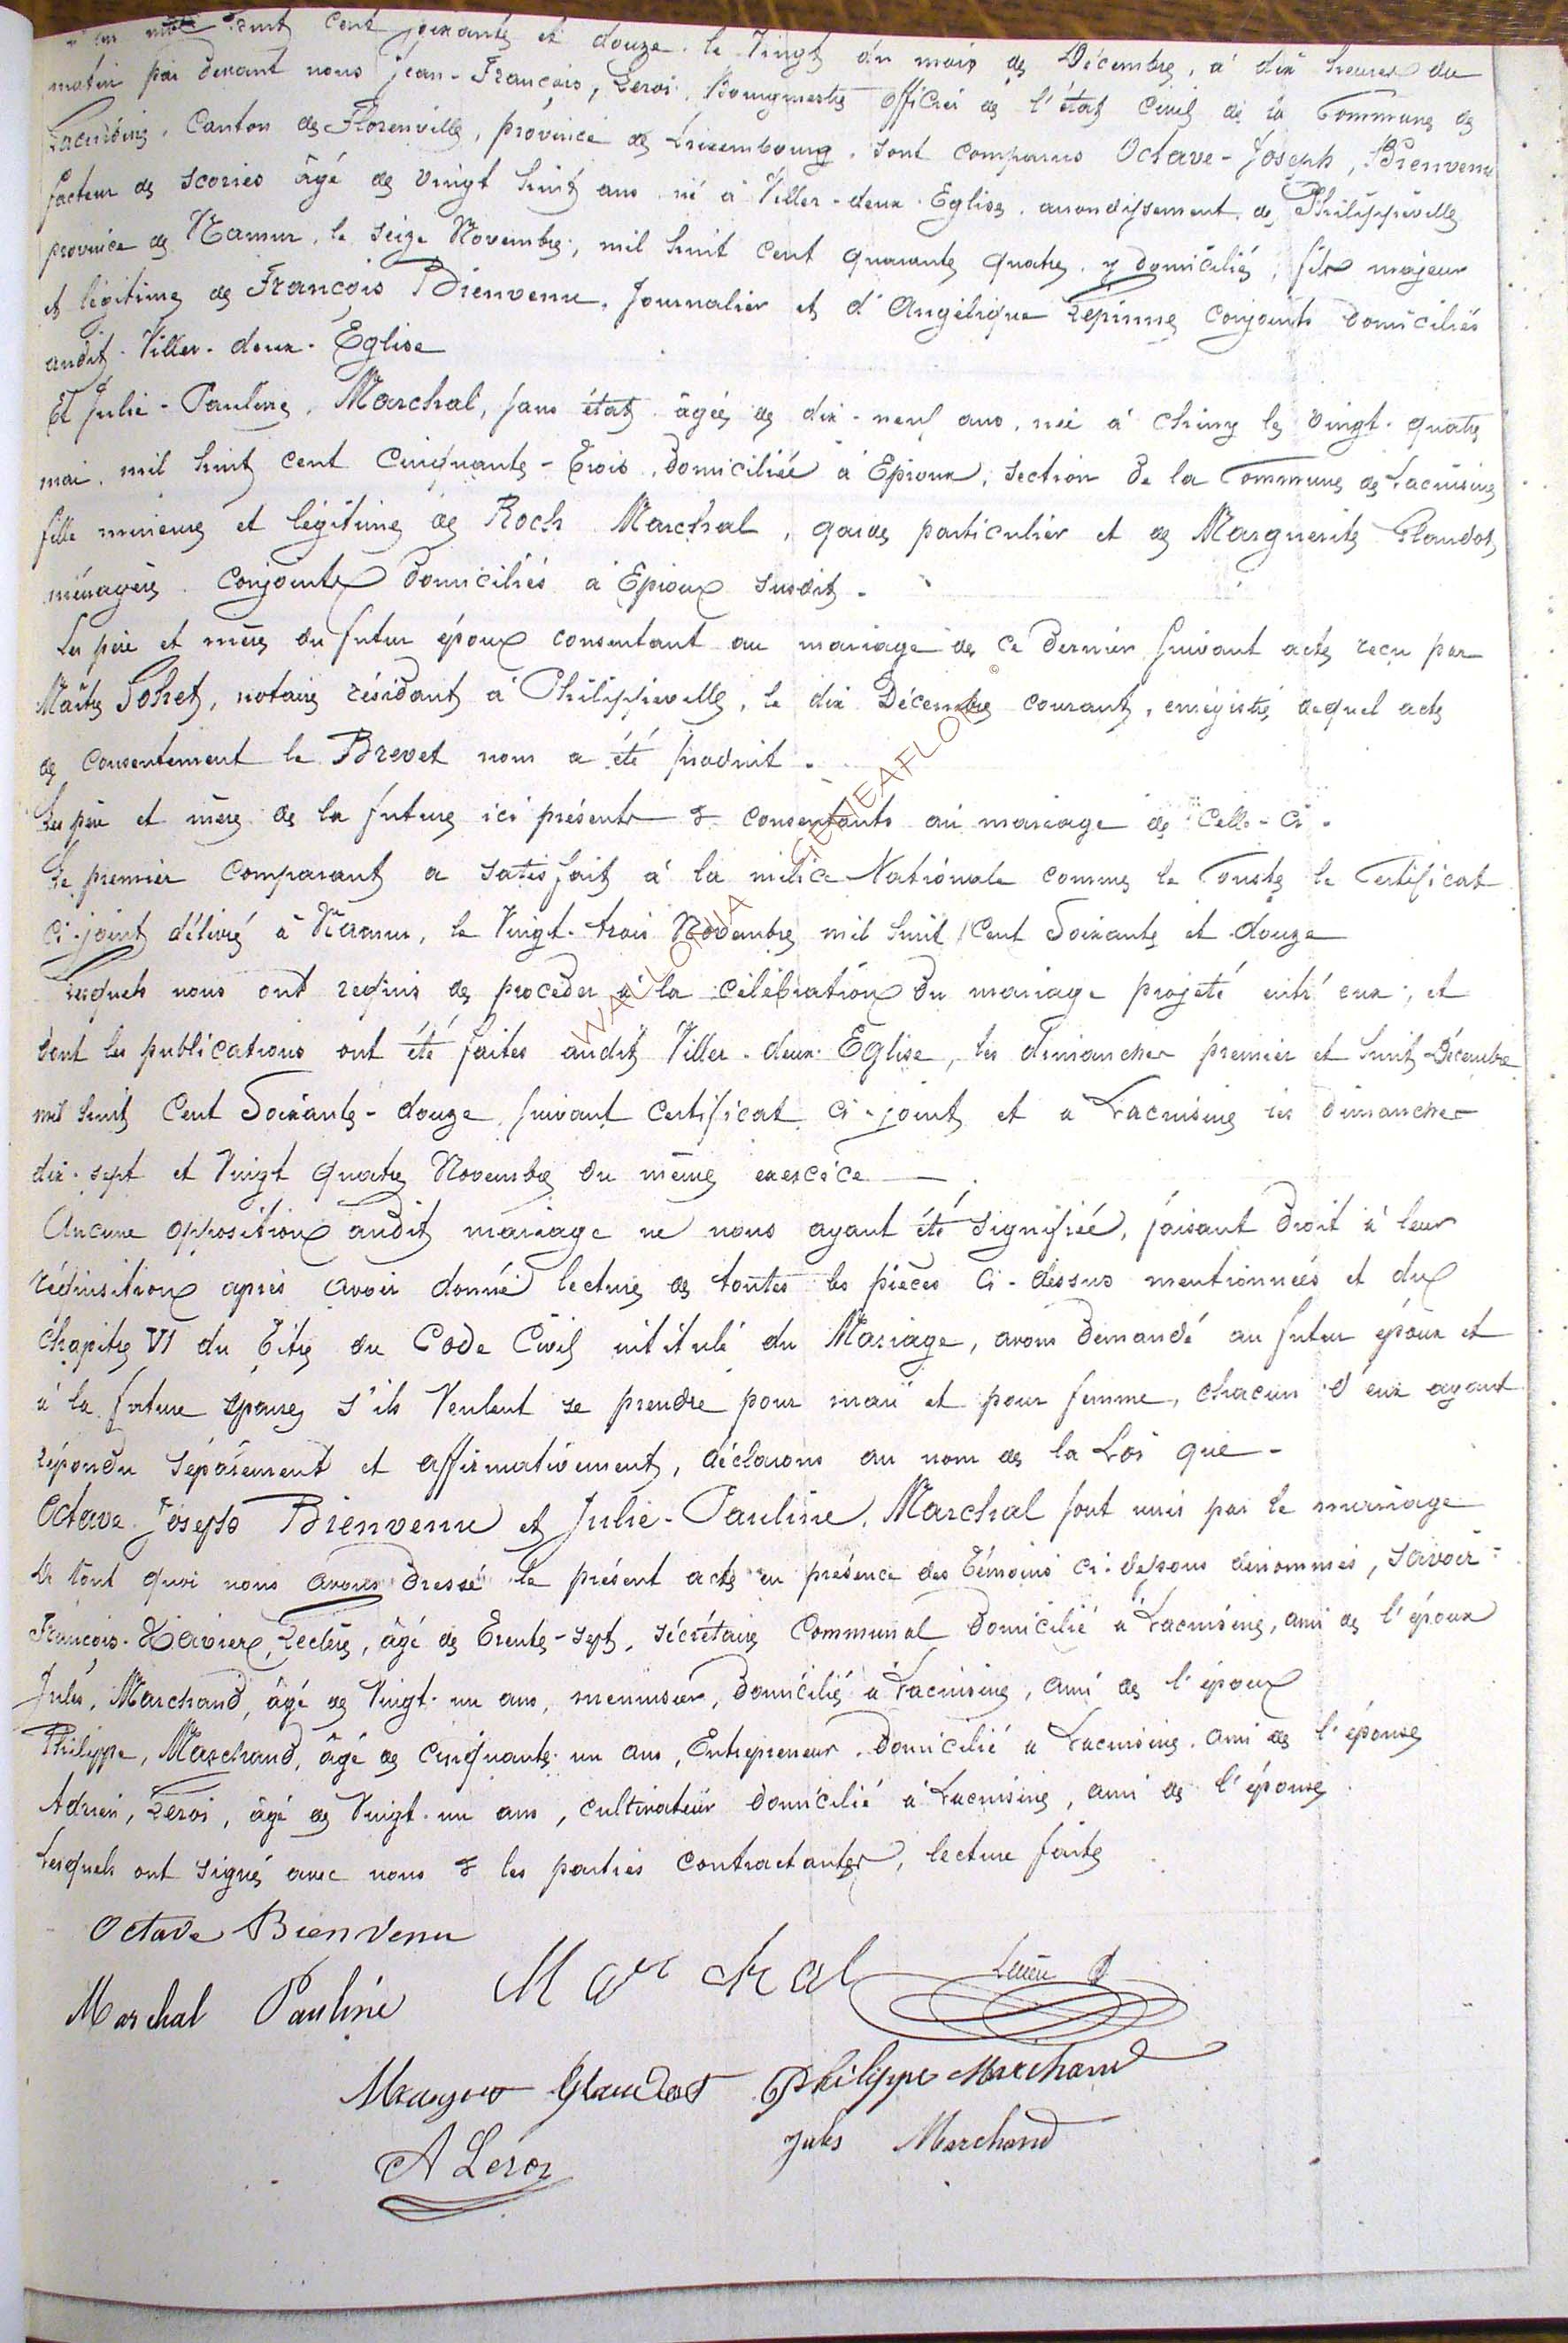 L'an mil huit cent soixante et douze le Vingt du mois de Décembre, à dix heures du
matin par devant nous Jean-François, Leroi, Bourgmestre officier de l'état civil de la Commune de
Lacuisine, Canton de Florenville, province de Luxembourg, sont comparus Octave-Joseph, Bienvenu
facteur de scories âgé de vingt huit ans né à Viller-deux-Eglise, arrondissement de Philippeville
province de Namur, le seize Novembre, mil huit cent quarante quatre, y domicilié, fils majeur
et légitime de François Bienvenu, Journalier et d'Angélique Lépinne conjoints domiciliés
audit Viller-deux-Eglise
Et Julie-Pauline, Marchal, sans état âgée de dix-neuf ans, née à Chiny le vingt-quatre
mai, mil huit cent cinquante-trois, domiciliée à Epioux, section de la Commune de Lacuisine
fille mineure et légitime de Roch Marchal, garde particulier et de Marguerite Glaudot
ménagère conjoints domiciliés à Epioux susdit.
Les père et mère du futur époux consentant au mariage de ce dernier suivant acte reçu par
Maître Sohet, notaire résidant à Philippeville, le dix Décembre courant, enregistré duquel acte
de consentement le Brevet nous a été produit.
Les père et mère de la future ici présents & consentants au mariage de Celle-ci.
Le premier comparant a satisfait à la milice Nationale comme le Conste le Certificat
ci-joint délivré à Namur, le Vingt-trois Novembre mil huit Cent Soixante et douze
Lesquels nous ont requis de procéder à la célébration du mariage projeté entr'eux, et
dont les publications ont été faites audit Viller-deux-Eglise, les dimanches premier et huit Décembre
mil huit Cent Soixante-douze suivant Certificat ci-joint et à Lacuisine les dimanches
dix-sept et Vingt quatre Novembre du même exercice
Aucune opposition audit mariage ne nous ayant été signifiée, faisant droit à leur
réquisition après avoir donné lecture de toutes les pièces ci-dessus mentionnées et du
Chapitre VI du Titre du Code Civil intitulé du Mariage, avons demandé au futur époux et
à la future épouse s'ils Veulent se prendre pour mari et pour femme, chacun d'eux ayant
répondu séparément et affirmativement, déclarons au nom de la Loi que -
Octave Joseph Bienvenu et Julie-Pauline, Marchal sont unis par le mariage
De tout quoi nous avons dressé le présent acte en présence des témoins ci-dessous dénommés, savoir:
François-Xavier, Lecère, âgé de Trente-sept, sécrétaire Communal domicilié à Lacuisine, ami de l'époux
Jules, Marchand, âgé de Vingt-un ans, menuisier, domicilié à Lacuisine, ami de l'époux
Philippe, Marchand, âgé de cinquante-un ans, Entrepreneur domicilié à Lacuisine, ami de l'épouse
Adrien, Leroi, âgé de Vingt-un ans, cultivateur domicilié à Lacuisine, ami de l'épouse
Lesquels ont signé avec nous & les parties contractantes, lecture faite
Octave Bienvenu
Marchal Pauline Marchal
Glaudot Philippe Marchand
A Leroi Jules Marchand
WALLONIA GENEAFLOR ©